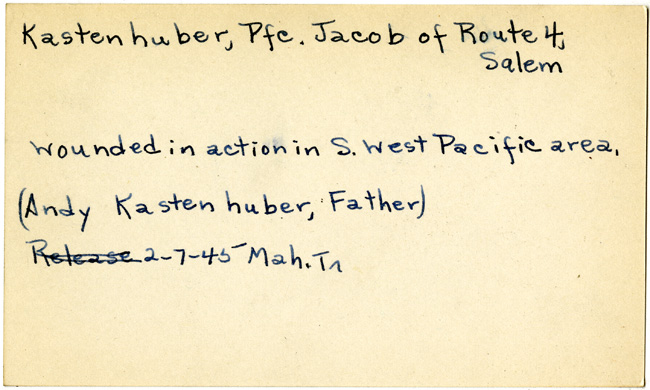 Kastenhuber, Pfc. Jacob of Route 4,
Salem
wounded in action in S. West Pacific area.
(Andy Kastenhuber, Father)
Release 2-7-45 Mah. Tr